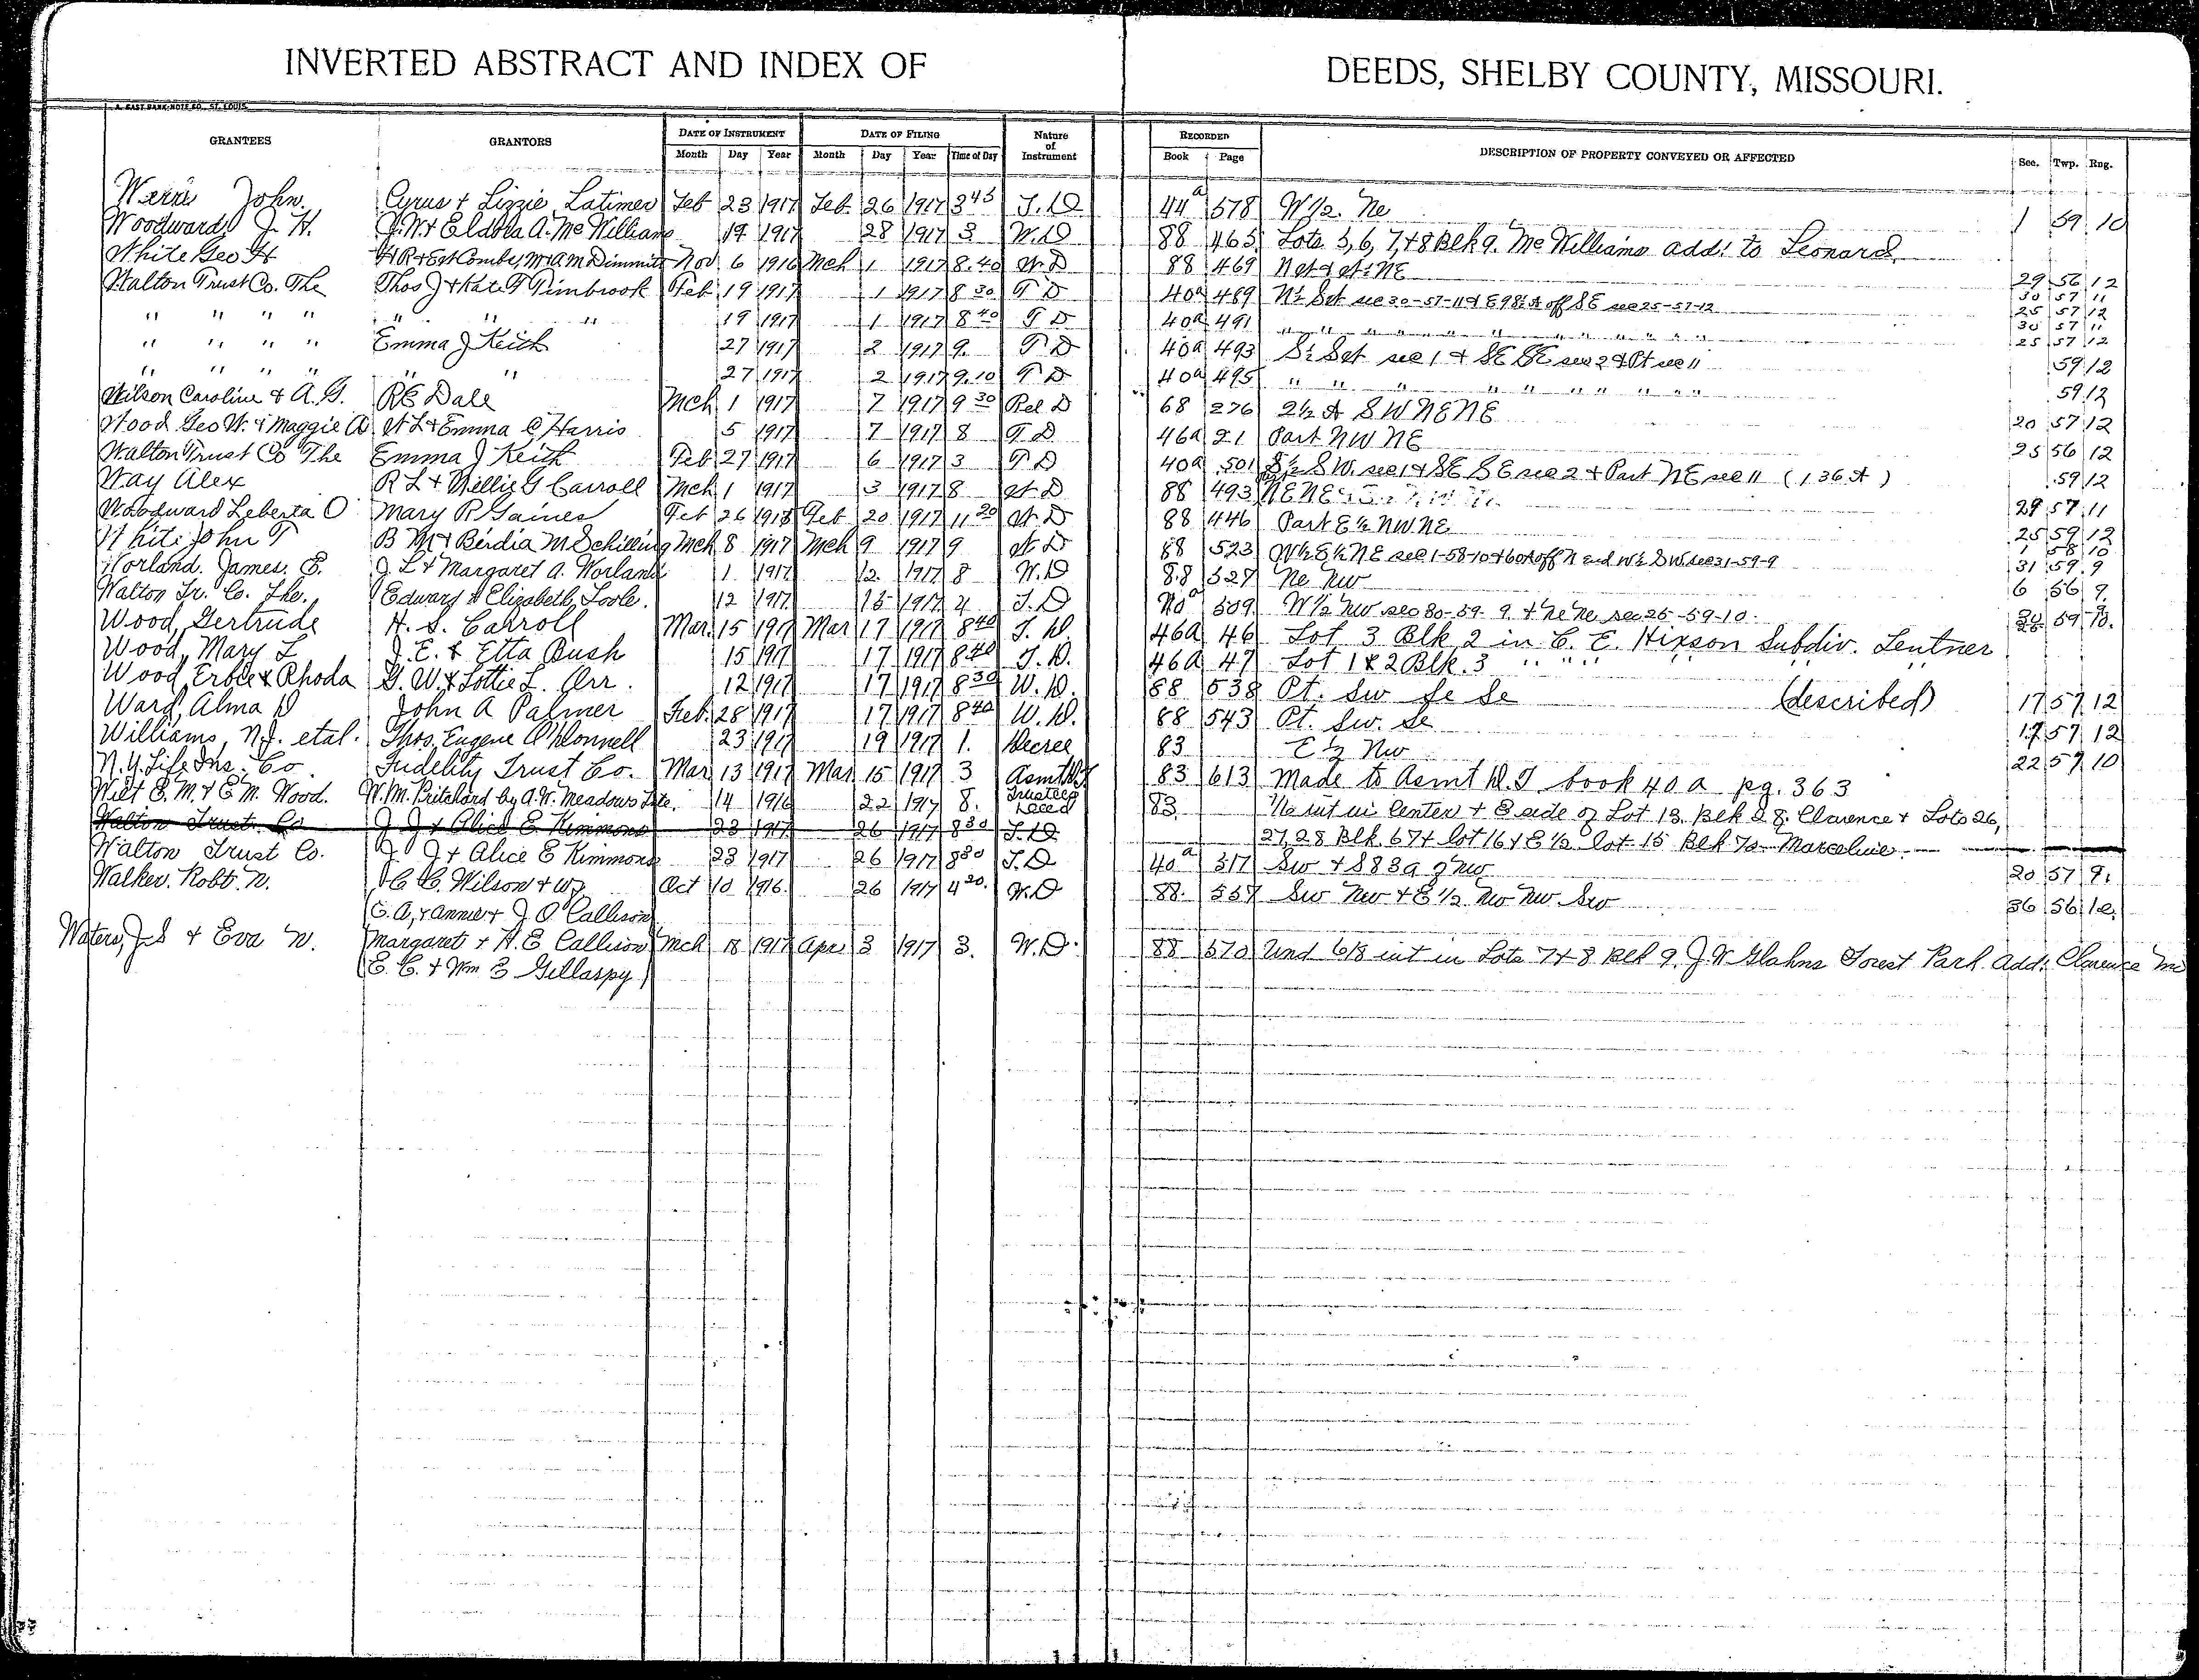 INVERTED ABSTRACT AND INDEX OF DEEDS, SHELBY COUNTY, MISSOURI.
GRANTEES GRANTORS DATE OF INSTRUMENT DATE OF FILING Nature of Instrument RECORDED DESCRIPTION OF PROPERTY CONVEYED OR AFFECTED Sec. Twp. Rng.
Month Day Year Month Day Year Time of Day Book Page
John Cyrus & Lizzie Latimer Feb 23 1917 Feb. 26 1917 3 45 T.D 44a 578 W 1/2 Ne 1 59 10
Woodward J. H. J.W. & Eldola A. McWilliams 19 1917 28 1917 3 W.D 88 465 Lots 5, 6, 7, & 8 Blk 9. McWilliams add. to Leonard
White Geo H Nov 6 1916 Mch 1 1917 8.40 W.D 88 469 29 56 12
Walton Trust Co. The Thos J & Kate F Timbrook Feb 19 1917 1 1917 8 30 T D 40a 489 N 1/2 Set sec 30-57-11 & E 98 1/2 A off SE sec 25-57-12 30 57 11 25 57 12
" " " " " " 19 1917 1 1917 8 40 T D 40a 491 " " " " " " 30 57 11 25 57 12
" " " " Emma J Keith 27 1917 2 1917 9 T D 40a 493 sec 1 & SE SE sec 2 & Pt sec 11 59 12
" " " " " " 27 1917 2 1917 9.10 T D 40a 495 " " " " " " 59 12
Wilson Caroline & A.G. RE Dale Mch 1 1917 7 1917 9 30 Rel D 68 276 2 1/2 A SWNENE 20 57 12
Wood Geo W. & Maggie A W L & Emma C Harris 5 1917 7 1917 8 T D 46a 21 Part NW NE 25 56 12
Walton Trust Co The Emma J Keith Feb 27 1917 6 1917 3 T D 40a 501 S 1/2 S W sec 1 & SE SE sec 2 & Part NE sec 11 (136 A) 59 12
Way Alex R L & Nellie G Carroll Mch 1 1917 3 1917 8 W D 88 493 NENE 29 57 11
Woodward Leberta O Mary R Gaines Feb 26 1918 Feb 20 1917 11 20 W D 88 446 Part E 1/2 NWNE 25 59 12
White John T B M & Birdia M Schilling Mch 8 1917 Mch 9 1917 9 W D 88 523 W 1/2 E 1/2 NE sec 1-58-10 & 60A off N end W 1/2 SW sec 31-59-9 1 58 10 31 59 9
Worland. James. E. J L & Margaret A. Worland 1 1917 12. 1917 8 W.D 88 527 Ne Nw 6 56 9
Walton Tr. Co. The. Edward & Elizabeth Toole. 12 1917 15 1917 4 T.D 509 W 1/2 NW sec 30-59-9. & Ne Ne sec 25-59-10. 59 10.
Wood, Gertrude H. S. Carroll Mar. 15 1917 Mar 17 1917 8 40 T. D. 46a 46 Lot 3 Blk 2 in C. E. Hixson Subdiv. Lentner
Wood, Mary L J. E. & Etta Bush 15 1917 17 1917 8 40 T. D. 46a 47 Lot 1 & 2 Blk. 3 " " " " "
Wood, Erbie & Rhoda G. W. & Lottie L. Orr. 12 1917 17 1917 8 30 W. D. 88 538 Pt. Sw Se Se (described) 17 57 12
Ward, Alma D John A Palmer Feb. 28 1917 17 1917 8 40 W. D. 88 543 Pt. Sw. Se 17 57 12
Williams, N.J. etal. Thos. Eugene O'Donnell 23 1917 19 1917 1. Decree 83 E 1/2 Nw 22 57 10
N.Y. Life Ins. Co. Fidelity Trust Co. Mar 13 1917 Mar 15 1917 3 Asmt 83 613 Made to Asmt D. T book 40 a pg. 363
Wilt E. M. & E M. Wood. W.M. Pritchard by A.W. Meadows Tte. 14 1916 22 1917 8. Trustees Deed 83. int in Center & E side of Lot 13. Blk 28. Clarence & Lots 26,
Walton Trust Co J J & Alice E Kimmons 23 1917 26 1917 8 30 T.D 27, 28 Blk. 67 & lot 16 & E 1/2 Lot 15 Blk 70 Marceline.
Walton Trust Co. J J & Alice E Kimmons 23 1917 26 1917 8 30 T.D 40a 317 Sw & S 83a of Nw 20 57 9.
Walker. Robt. N. C. C. Wilson & wf Oct 10 1916. 26 1917 4 20. W.D 88. 557 Sw Nw & E 1/2 Nw Nw Sw 36 56 12.
E. A. & Annie & J O Callison
Waters, J S & Eva N. Margaret & H. E Callison Mch 18 1917 Apr 3 1917 3. W.D. 88 570 Und 6/8 int in Lots 7 & 8 Blk 9. J. W Glahns Forest Park. Add. Clarence Mo
E. C. & Wm E Gillaspy